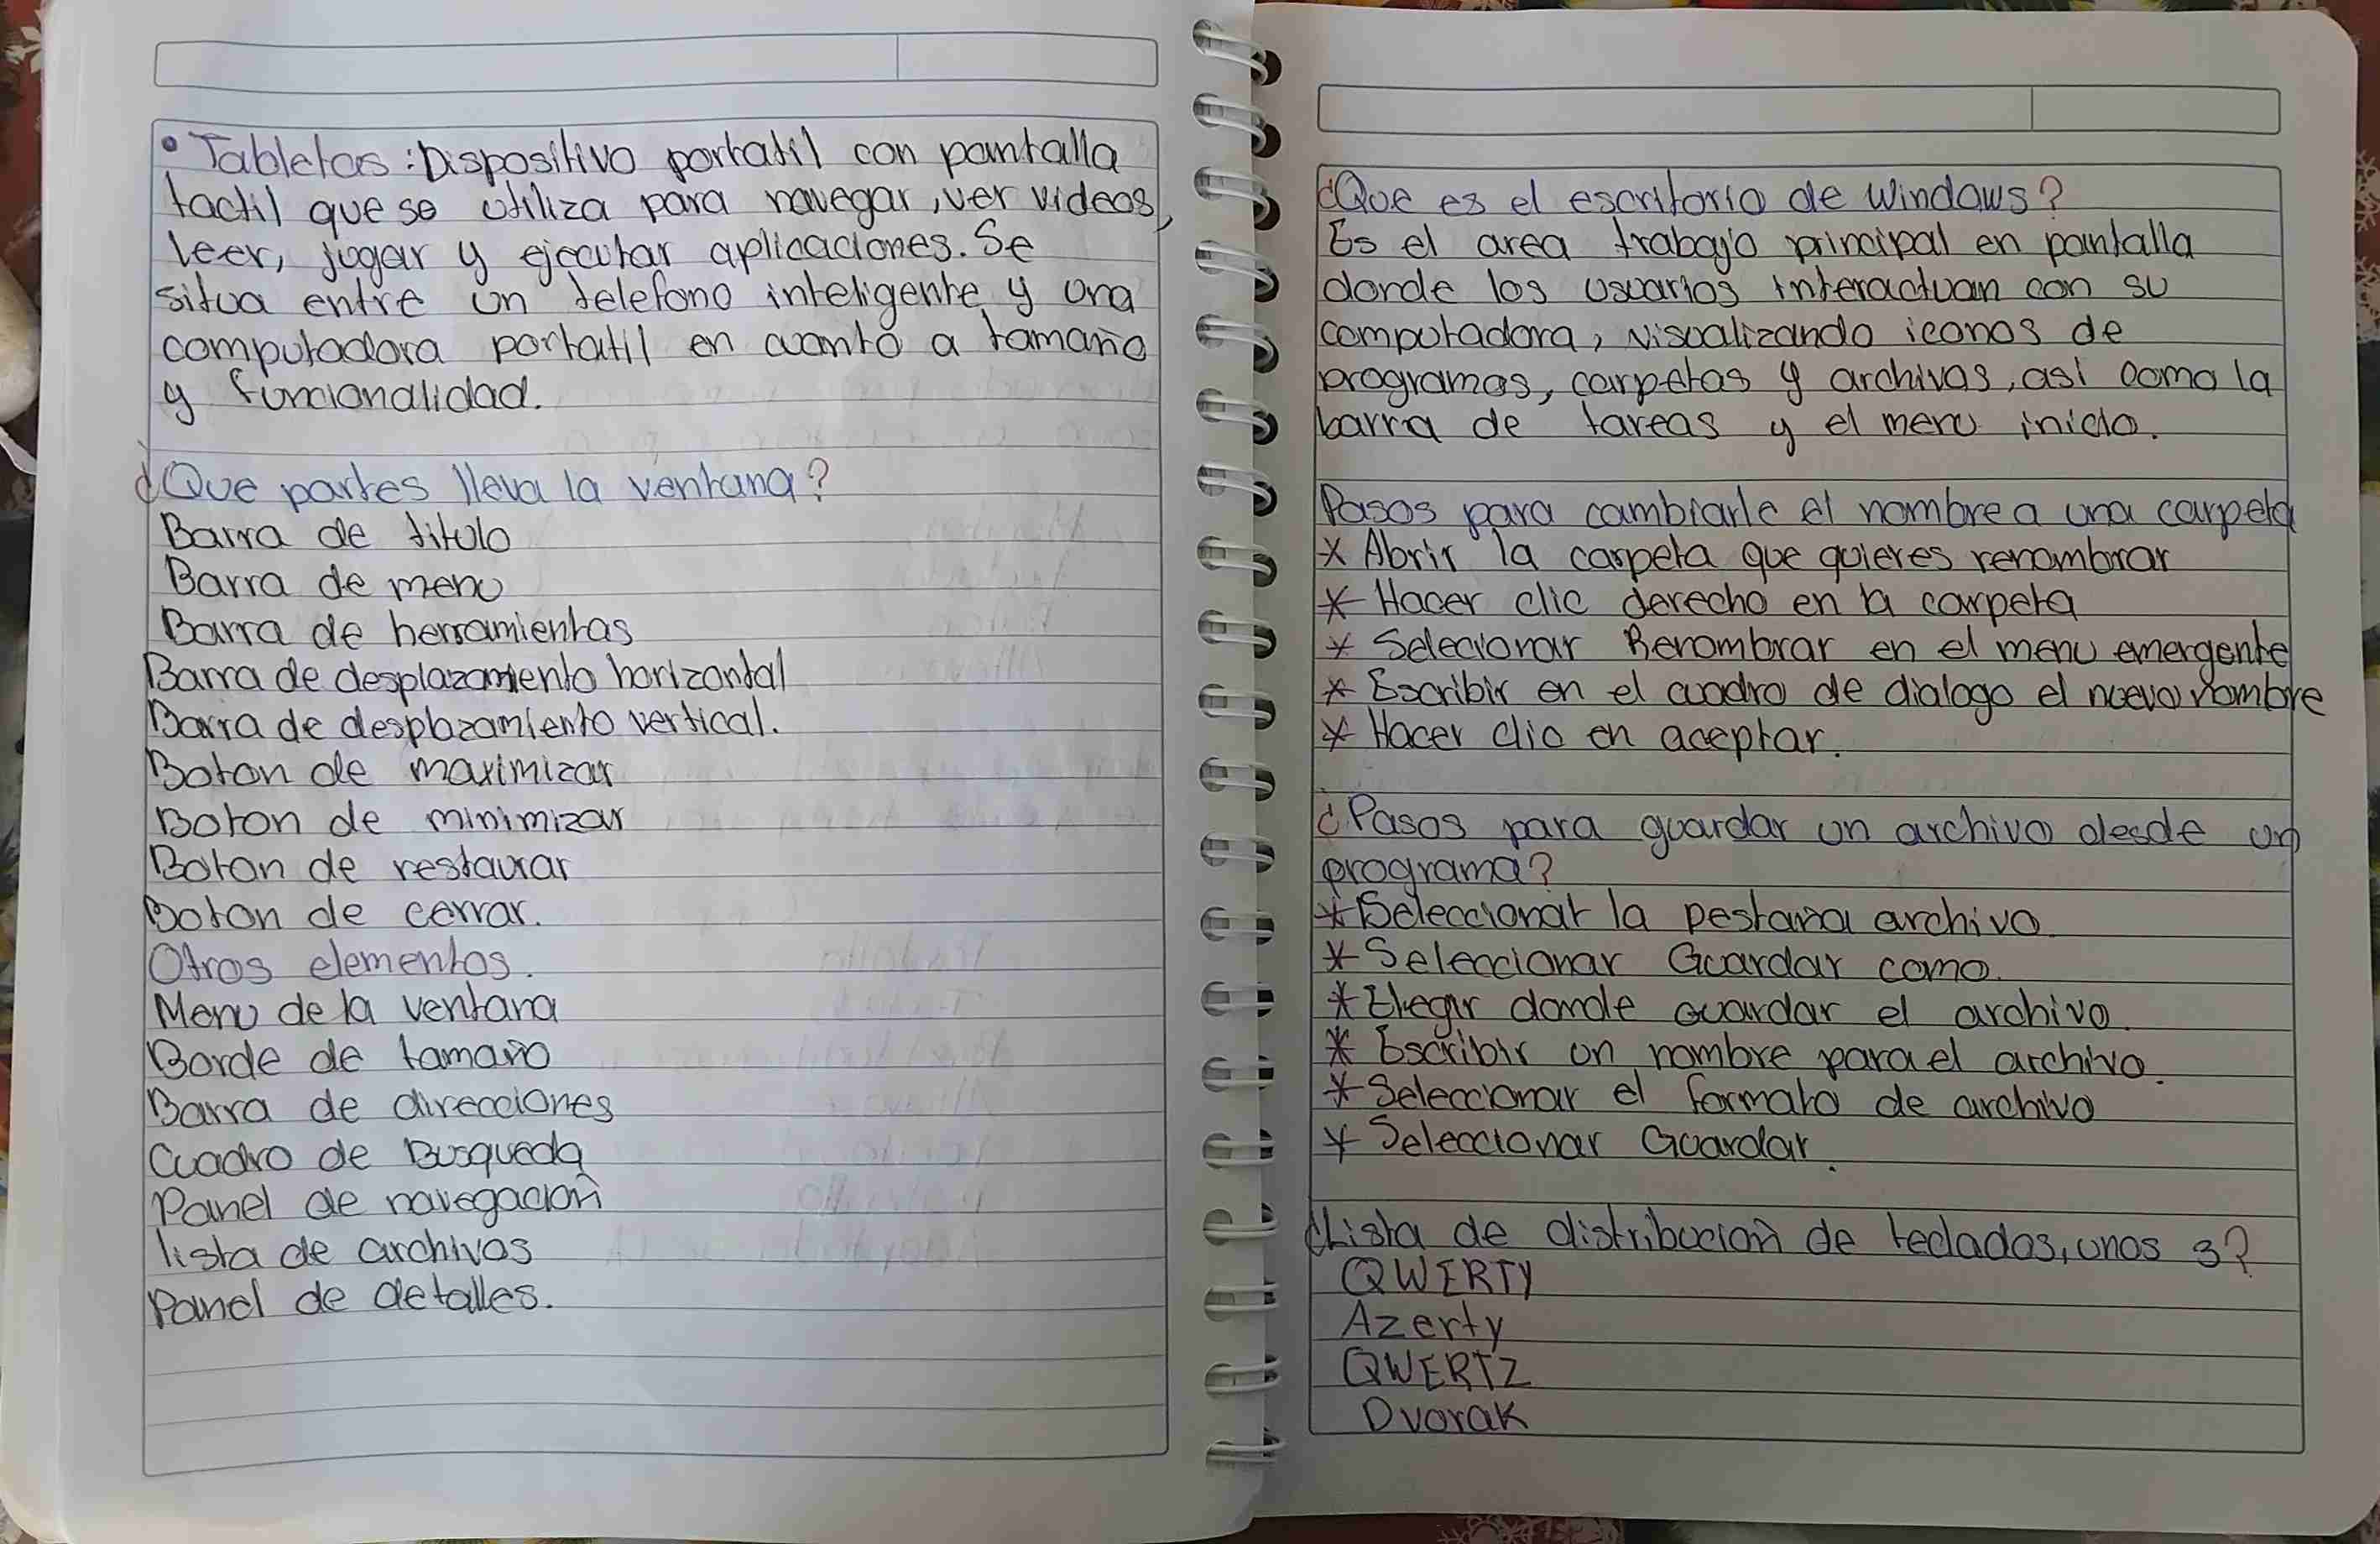 • Tabletas: Dispositivo portatil con pantalla
tactil que se utiliza para navegar, ver videos,
leer, jugar y ejecutar aplicaciones. Se
situa entre un telefono inteligente y una
computadora portatil en cuanto a tamaño
y funcionalidad.
¿Que partes lleva la ventana?
Barra de titulo
Barra de menu
Barra de herramientas
Barra de desplazamiento horizontal
Barra de desplazamiento vertical.
Boton de maximizar
Boton de minimizar
Boton de restaurar
Boton de cerrar.
Otros elementos.
Menu de la ventana
Borde de tamaño
Barra de direcciones
Cuadro de Busqueda
Panel de navegación
lista de archivos
Panel de detalles.
¿Que es el escritorio de Windows?
Es el area trabajo principal en pantalla
donde los usuarios interactuan con su
computadora, visualizando iconos de
programas, carpetas y archivos, asi como la
barra de tareas y el menu inicio.
Pasos para cambiarle el nombre a una carpeta
* Abrir la carpeta que quieres renombrar
* Hacer clic derecho en la carpeta
* Selecionar Renombrar en el menu emergente
* Escribir en el cuadro de dialogo el nuevo nombre
* Hacer clic en aceptar.
¿Pasos para guardar un archivo desde un
programa?
* Seleccionar la pestana archivo
* Seleccionar Guardar como.
* Elegir donde guardar el archivo.
* Escribir un nombre para el archivo.
* Seleccionar el formato de archivo
* Seleccionar Guardar.
¿Lista de distribución de teclados, unos 3?
QWERTY
Azerty
QWERTZ
Dvorak